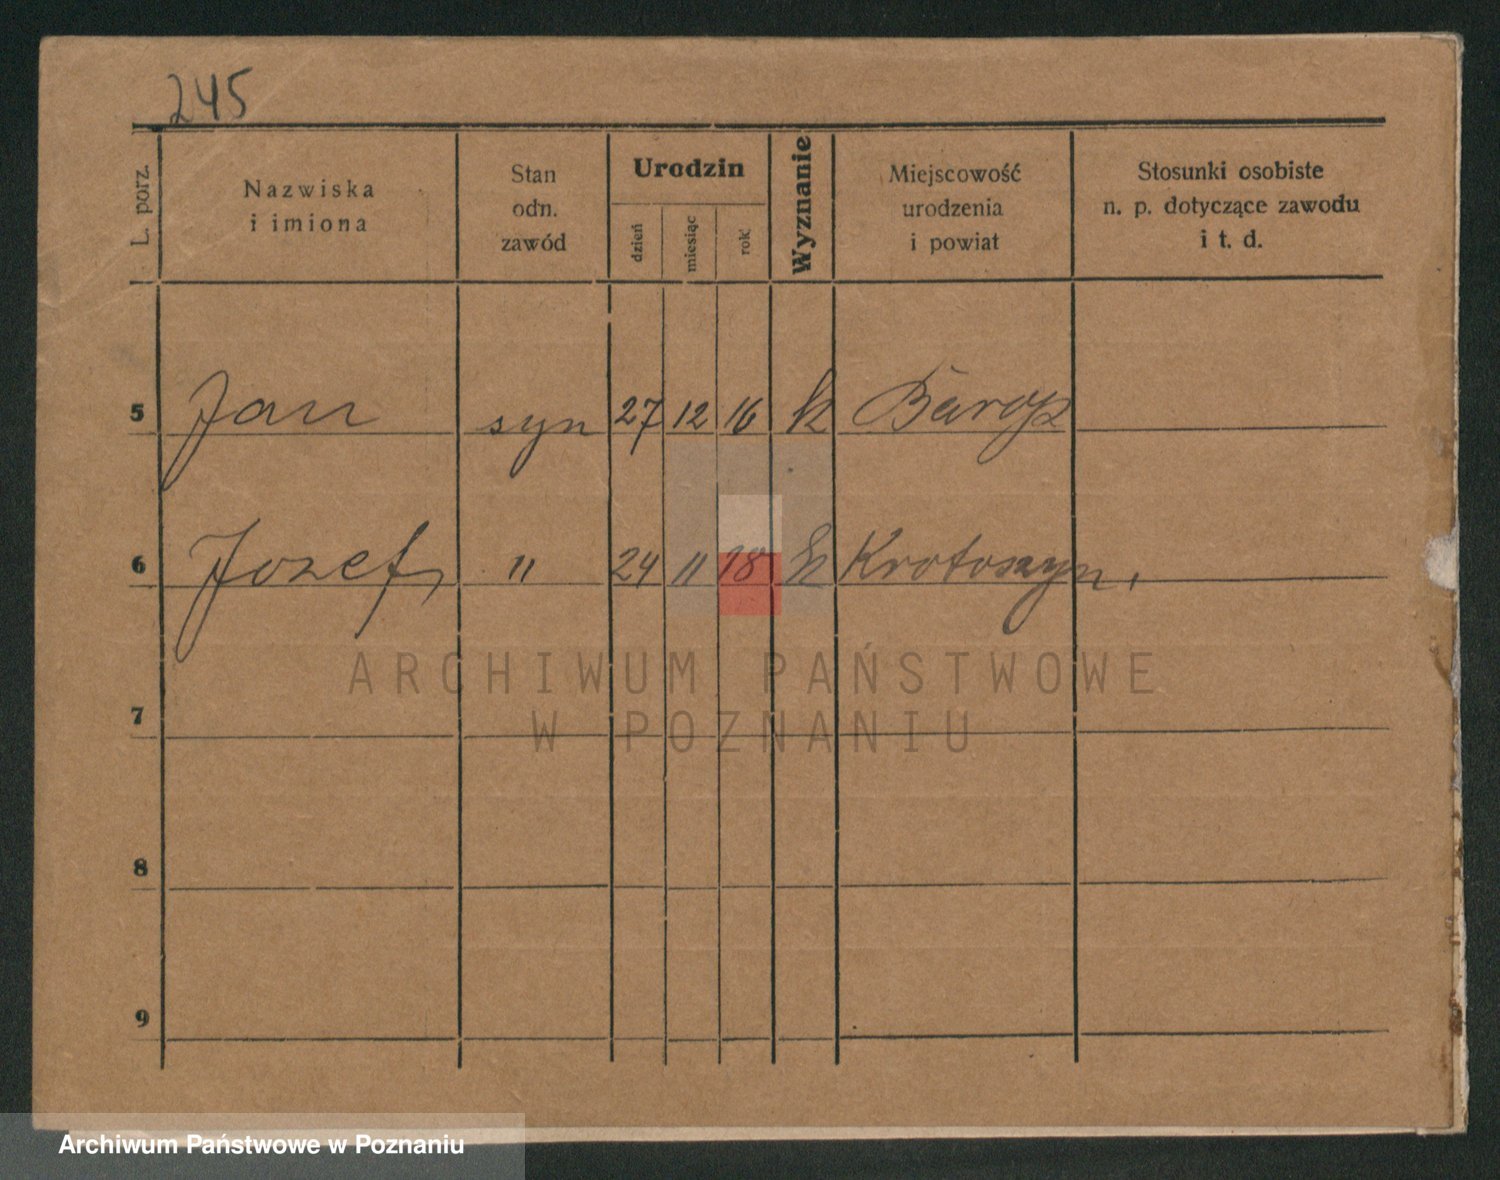 245
L. porz.
Nazwiska
i imiona
Stan
odn.
zawód
Urodzin
dzień
miesiąc
rok
Wyznanie
Miejscowość
urodzenia
i powiat
Stosunki osobiste
n. p. dotyczące zawodu
i t. d.
5 Jan syn 27 12 16 k
6 Jozef, " 24 11 18 k Krotoszyn,
7
8
9
ARCHIWUM PAŃSTWOWE
W POZNANIU
Archiwum Państwowe w Poznaniu